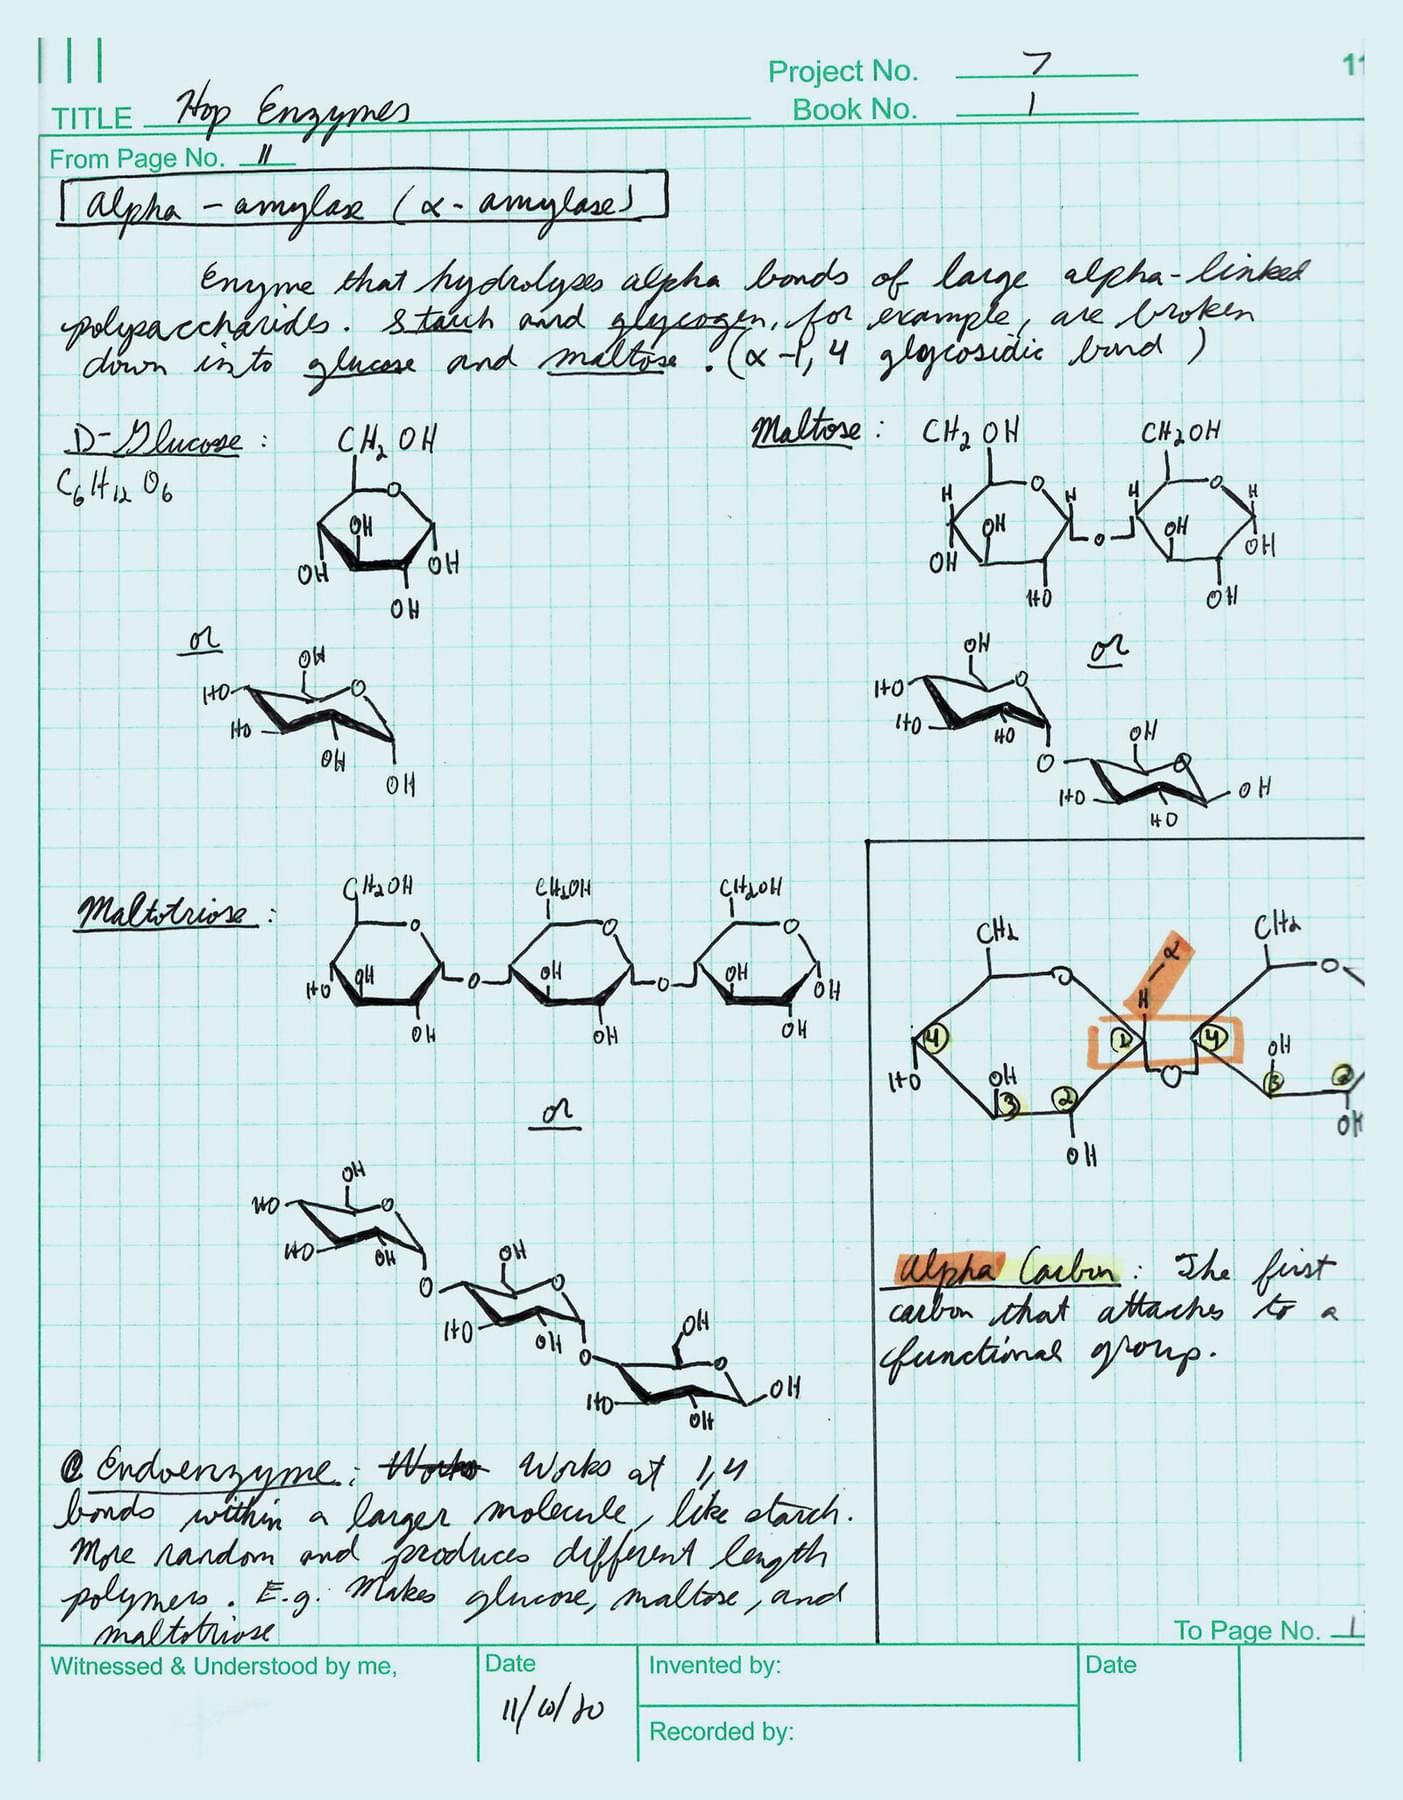 Project No. 7
11
TITLE Hop Enzymes
Book No. 1
From Page No. 11
Alpha-amylase (α-amylase)
Enzyme that hydrolyses alpha bonds of large alpha-linked
polysaccharides. Starch and glycogen, for example, are broken
down into glucose and maltose. (α-1,4 glycosidic bond)
D-Glucose:
C6H12O6
CH2OH
O
OH
OH
OH
OH
or
OH
HO
O
HO
OH
OH
Maltose:
CH2OH
CH2OH
O
O
H
H
H
H
OH
OH
O
OH
OH
HO
OH
or
OH
HO
O
HO
HO
OH
O
O
HO
OH
HO
Maltotriose:
CH2OH
CH2OH
CH2OH
O
O
O
OH
OH
OH
HO
O
O
OH
OH
OH
OH
or
OH
HO
O
HO
OH
OH
O
O
HO
OH
OH
O
O
HO
OH
OH
CH2
CH2
O
O
α
H
4
1
4
HO
OH
3
2
O
OH
3
2
OH
OH
Alpha Carbon: The first
carbon that attaches to a
functional group.
Endoenzyme: Works Works at 1,4
bonds within a larger molecule, like starch.
More random and produces different length
polymers. E.g. Makes glucose, maltose, and
maltotriose
To Page No. 1
Witnessed & Understood by me,
Date
Invented by:
Date
Recorded by: